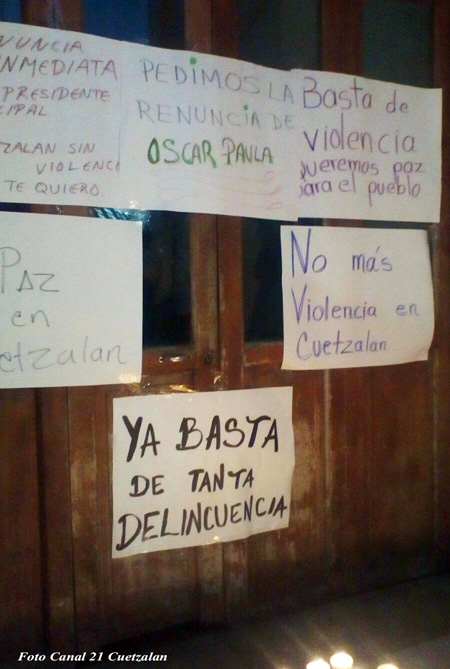 NUNCIA
NMEDIATA
PRESIDENTE
CIPAL
ZALAN SIN
VIOLENCI
TE QUIERO.
PEDIMOS LA
RENUNCIA DE
OSCAR PAULA
Basta de
violencia
queremos paz
para el pueblo
PAZ
en
etzalan
No más
Violencia en
Cuetzalan..
YA BASTA
DE TANTA
DELINCUENCIA
Foto Canal 21 Cuetzalan